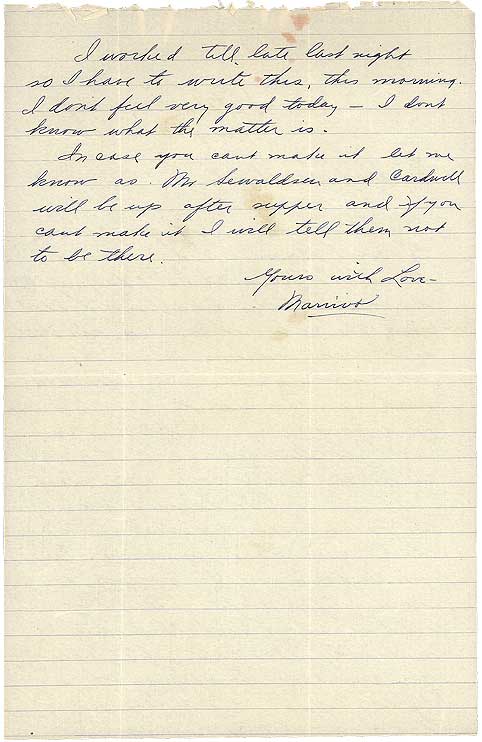 I worked till late last night
so I have to write this, this morning.
I dont feel very good today – I dont
know what the matter is.
In case you cant make it let me
know as Mr Sewaldsen and Cardwell
will be up after supper and if you
cant make it I will tell them not
to be there.
Yours with Love –